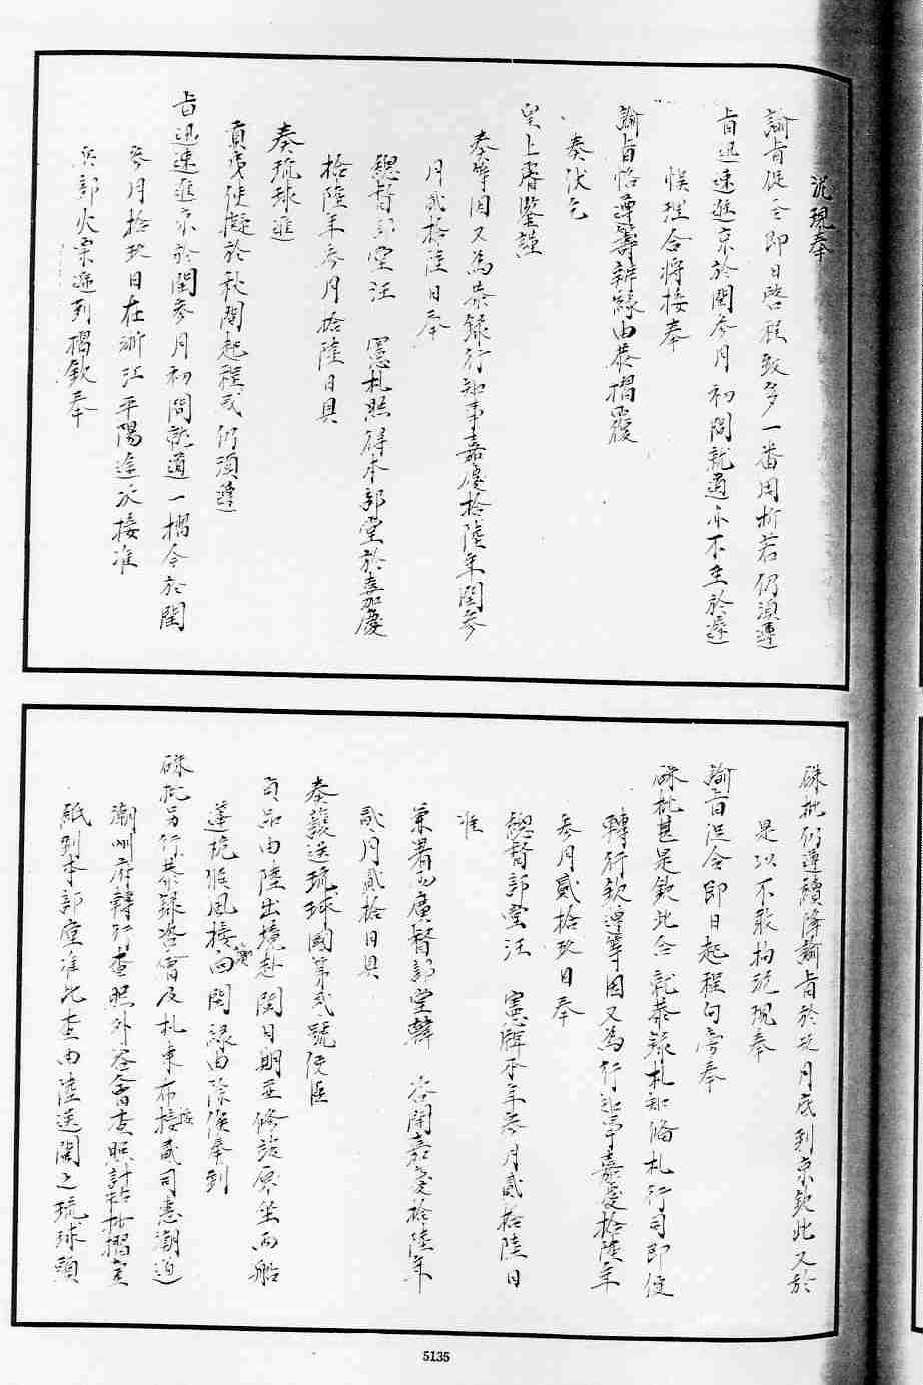 況現奉
諭旨促令即日啓程致多一番周折若仍須遵
旨迅速進京於閏叁月初間就道亦不至於遲
悞理合將接奉
諭旨恪遵籌辦緣由恭摺覆
奏伏乞
皇上睿鑒謹
奏等因又為恭錄行知事嘉慶拾陸年閏叁
月貳拾陸日奉
總督部堂汪　憲札照得本部堂於嘉慶
拾陸年叁月拾陸日具
奏琉球進
貢夷使擬於秋間起程或仍須遵
旨迅速進京於閏叁月初間就道一摺今於閏
叁月拾玖日在浙江平陽途次接准
兵部火票遞到摺欽奉
硃批仍遵續降諭旨於月底到京欽此又於
是以不敢拘泥現奉
諭旨促令即日起程句旁奉
硃批甚是欽此合就恭錄札知俻札行司即便
轉行欽遵等因又為行知事嘉慶拾陸年
叁月貳拾玖日奉
總督部堂汪　憲牌本年叁月貳拾陸日
准
兼署兩廣督部堂韓　咨開嘉慶拾陸年
貳月貳拾日具
奏護送琉球國第貳號使臣
貢品由陸出境赴閩日期並修葺原坐兩船
蓬桅候風接回閩緣由除俟奉到
硃批另行恭錄咨會及札東布按貳司惠潮道
潮州府轉行查照外咨會查照計粘抄摺壹
紙到本部堂准此查由陸送閩之琉球頭
5135